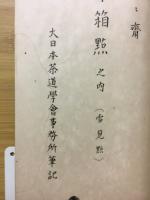 箱點之内(雪見點)
大日本茶道學會事務所筆記